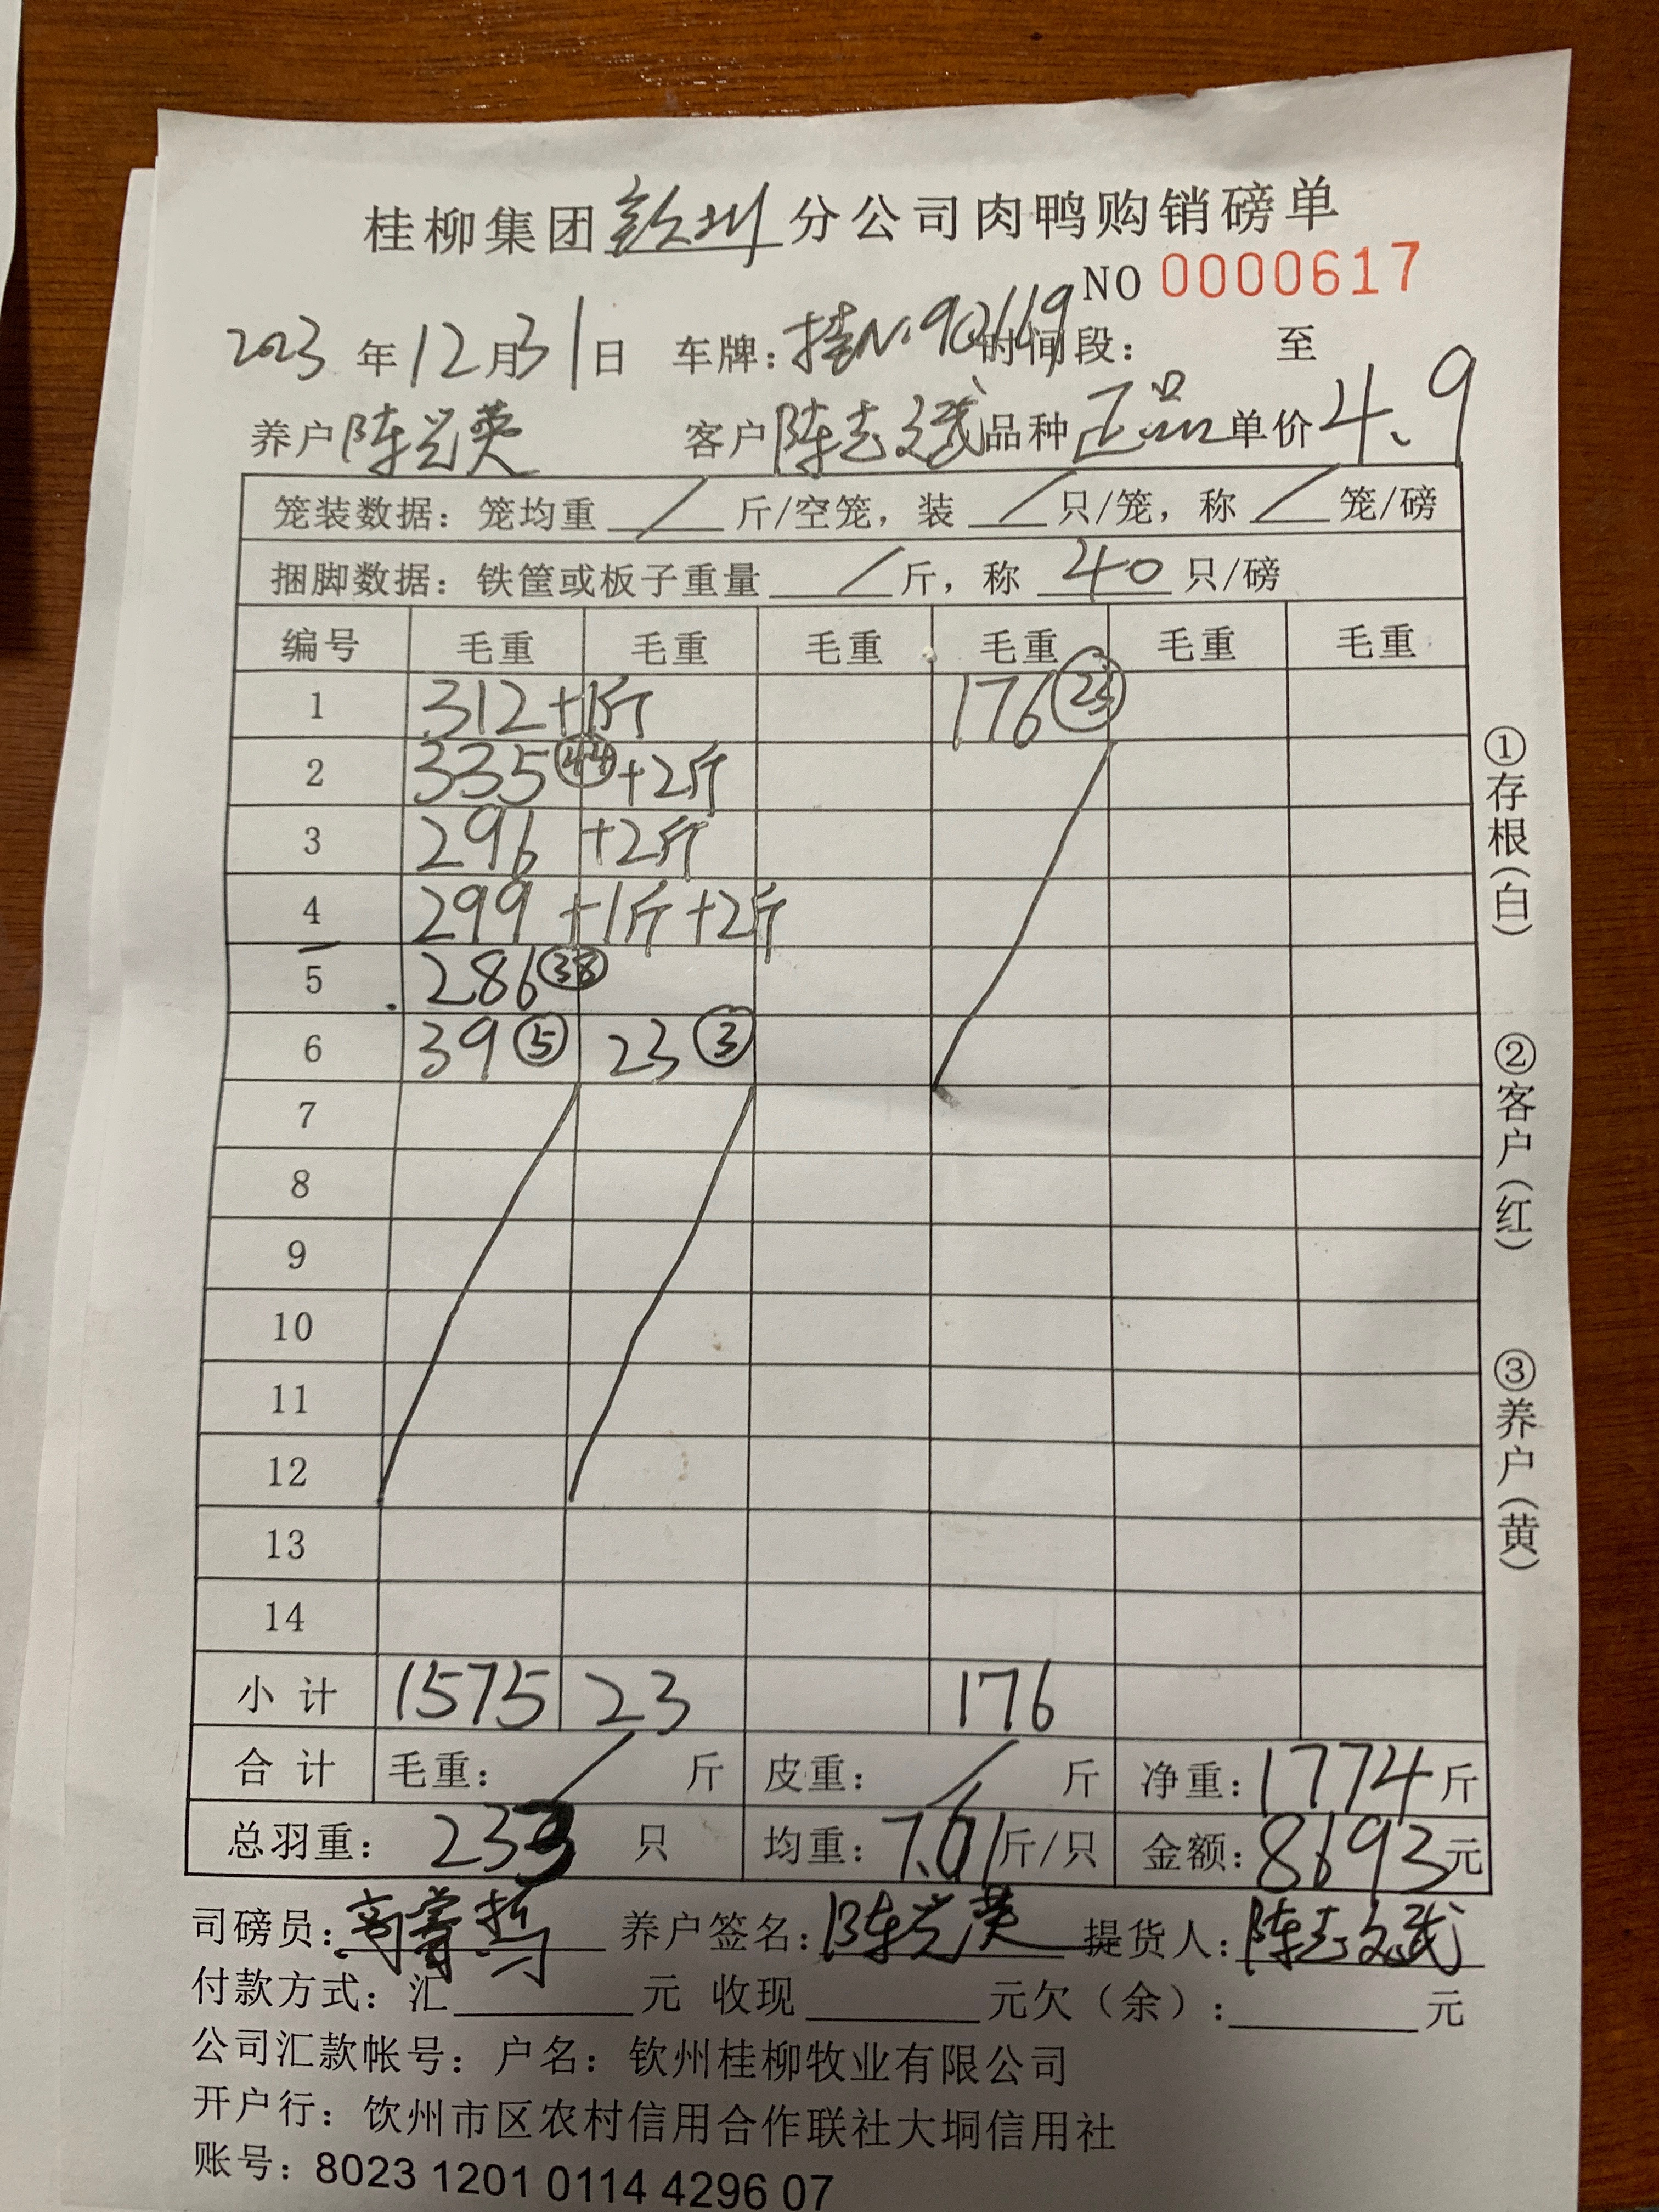 桂柳集团钦州分公司肉鸭购销磅单
NO 0000617
2023年12月31日 车牌：桂N·92119时间段： 至
养户陈兴英 客户陈志斌品种正品单价4.9
笼装数据：笼均重/斤/空笼，装/只/笼，称/笼/磅
捆脚数据：铁筐或板子重量/斤，称40只/磅
编号 毛重 毛重 毛重 毛重 毛重 毛重
1 312+1斤 176 23
2 335 44 +2斤
3 296 +2斤
4 299 +1斤+2斤
5 286 38
6 39 5 23 3
7
8
9
10
11
12
13
14
小计 1575 23 176
合计 毛重：/斤 皮重：/斤 净重：1774斤
总羽重：233只 均重：7.61斤/只 金额：8693元
司磅员： 养户签名：陈兴英 提货人：陈志斌
付款方式：汇 元 收现 元欠（余）： 元
公司汇款帐号：户名：钦州桂柳牧业有限公司
开户行：钦州市区农村信用合作联社大垌信用社
账号：8023 1201 0114 4296 07
①存根（白）
②客户（红）
③养户（黄）